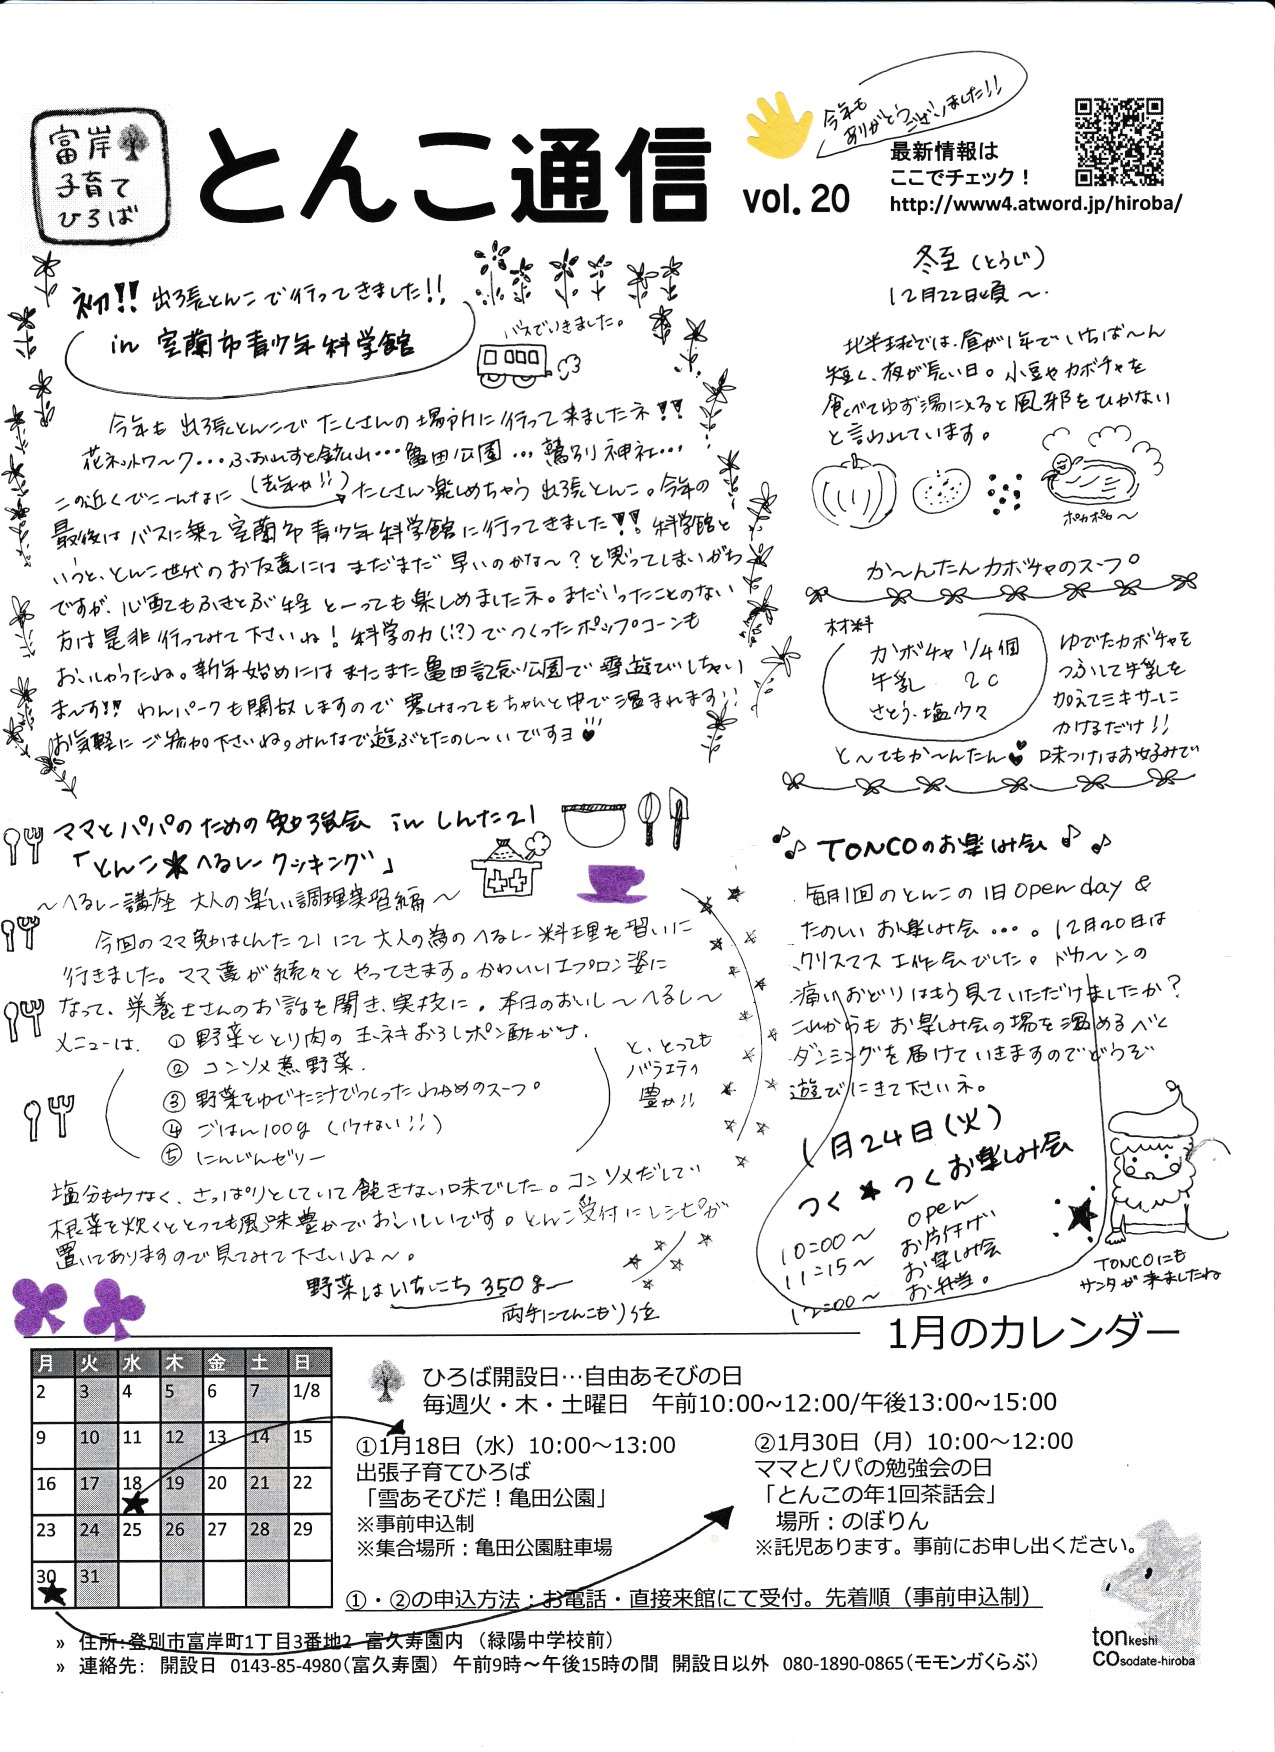 富岸
子育て
ひろば
とんこ通信
vol. 20
今年も
ありがとう
ございました!!
最新情報は
ここでチェック！
http://www4.atword.jp/hiroba/
初!! 出張とんこで行ってきました!!
in 室蘭市青少年科学館
バスでいきました。
今年も 出張とんこで たくさんの場所に行って来ましたネ!!
花ネットワーク・・・ふぉれすと鉱山・・・亀田公園・・・鷲別神社・・・
この近くでこーんなに(去年か!!)たくさん楽しめちゃう 出張とんこ。今年の
最後は バスに乗って室蘭市青少年科学館に行ってきました!! 科学館と
いうと、とんこ世代のお友達には まだまだ 早いのかな〜？と思ってしまいがち
ですが、心配もふきとぶ程 とーっても楽しめましたネ。まだいったことのない
方は是非行ってみて下さいね！科学の力(!?)でつくったポップコーンも
おいしかったね。新年始めには またまた亀田記念公園で 雪遊びしちゃい
ま〜す!!! わんパークも開放しますので 寒くなってもちゃんと中で温まれます!!
お気軽に ご参加下さいね。みんなで遊ぶとたのし〜いですヨ
冬至（とうじ）
12月22日頃〜.
北半球では、昼が1年でいちば〜ん
短く、夜が長い日。小豆やカボチャを
食べてゆず湯に入ると風邪をひかない
と言われています。
ポカポカ〜
か〜んたんカボチャのスープ
材料
カボチャ 1/4個
牛乳 2C
さとう・塩 少々
ゆでたカボチャを
つぶして牛乳を
加えてミキサーに
かけるだけ!!
と〜てもか〜んたん 味つけはお好みで
ママとパパのための勉強会 in しんた21
「とんこ★へるしークッキング」
〜へるしー講座 大人の楽しい調理実習編〜
今回のママ勉はしんた21にて 大人の為のへるしー料理を習いに
行きました。ママ達が続々と やってきます。かわいいエプロン姿に
なって、栄養士さんのお話を聞き、実技に。本日のおいし〜へるし〜
メニューは、① 野菜ととり肉の 玉ネギおろしポン酢がけ.
② コンソメ煮野菜.
③ 野菜をゆでた汁でつくった わかめのスープ
④ ごはん100g（少ない!!）
⑤ にんじんゼリー
と、とっても
バラエティ
豊か!!
塩分も少なく、さっぱりとしていて 飽きない味でした。コンソメだしで
根菜を炊くととっても風味豊かでおいしいです。とんこ受付にレシピが
置いてありますので見てみて下さいね〜。
野菜はいちにち350g〜
両手にてんこもり位
TONCOのお楽しみ会
毎月1回のとんこの1日open day &
たのしい お楽しみ会・・・。12月20日は
クリスマス工作会でした。ドカーンの
痛いおどりはもう見ていただけましたか？
これからも お楽しみ会の場を温めるべく
ダンシングを届けていきますのでどうぞ
遊びにきて下さいネ。
1月24日（火）
つく★つくお楽しみ会
10:00〜 open
11:15〜 お片付け
お楽しみ会
12:00〜 お弁当。
TONCOにも
サンタが来ましたね
1月のカレンダー
月 火 水 木 金 土 日
2 3 4 5 6 7 1/8
9 10 11 12 13 14 15
16 17 18 19 20 21 22
23 24 25 26 27 28 29
30 31
ひろば開設日…自由あそびの日
毎週火・木・土曜日 午前10:00~12:00/午後13:00~15:00
①1月18日（水）10:00～13:00
出張子育てひろば
「雪あそびだ！亀田公園」
※事前申込制
※集合場所：亀田公園駐車場
②1月30日（月）10:00～12:00
ママとパパの勉強会の日
「とんこの年1回茶話会」
場所：のぼりん
※託児あります。事前にお申し出ください。
①・②の申込方法：お電話・直接来館にて受付。先着順（事前申込制）
» 住所：登別市富岸町1丁目3番地2 富久寿園内 （緑陽中学校前）
» 連絡先： 開設日 0143-85-4980（富久寿園） 午前9時～午後15時の間 開設日以外 080-1890-0865（モモンガくらぶ）
tonkeshi
COsodate-hiroba